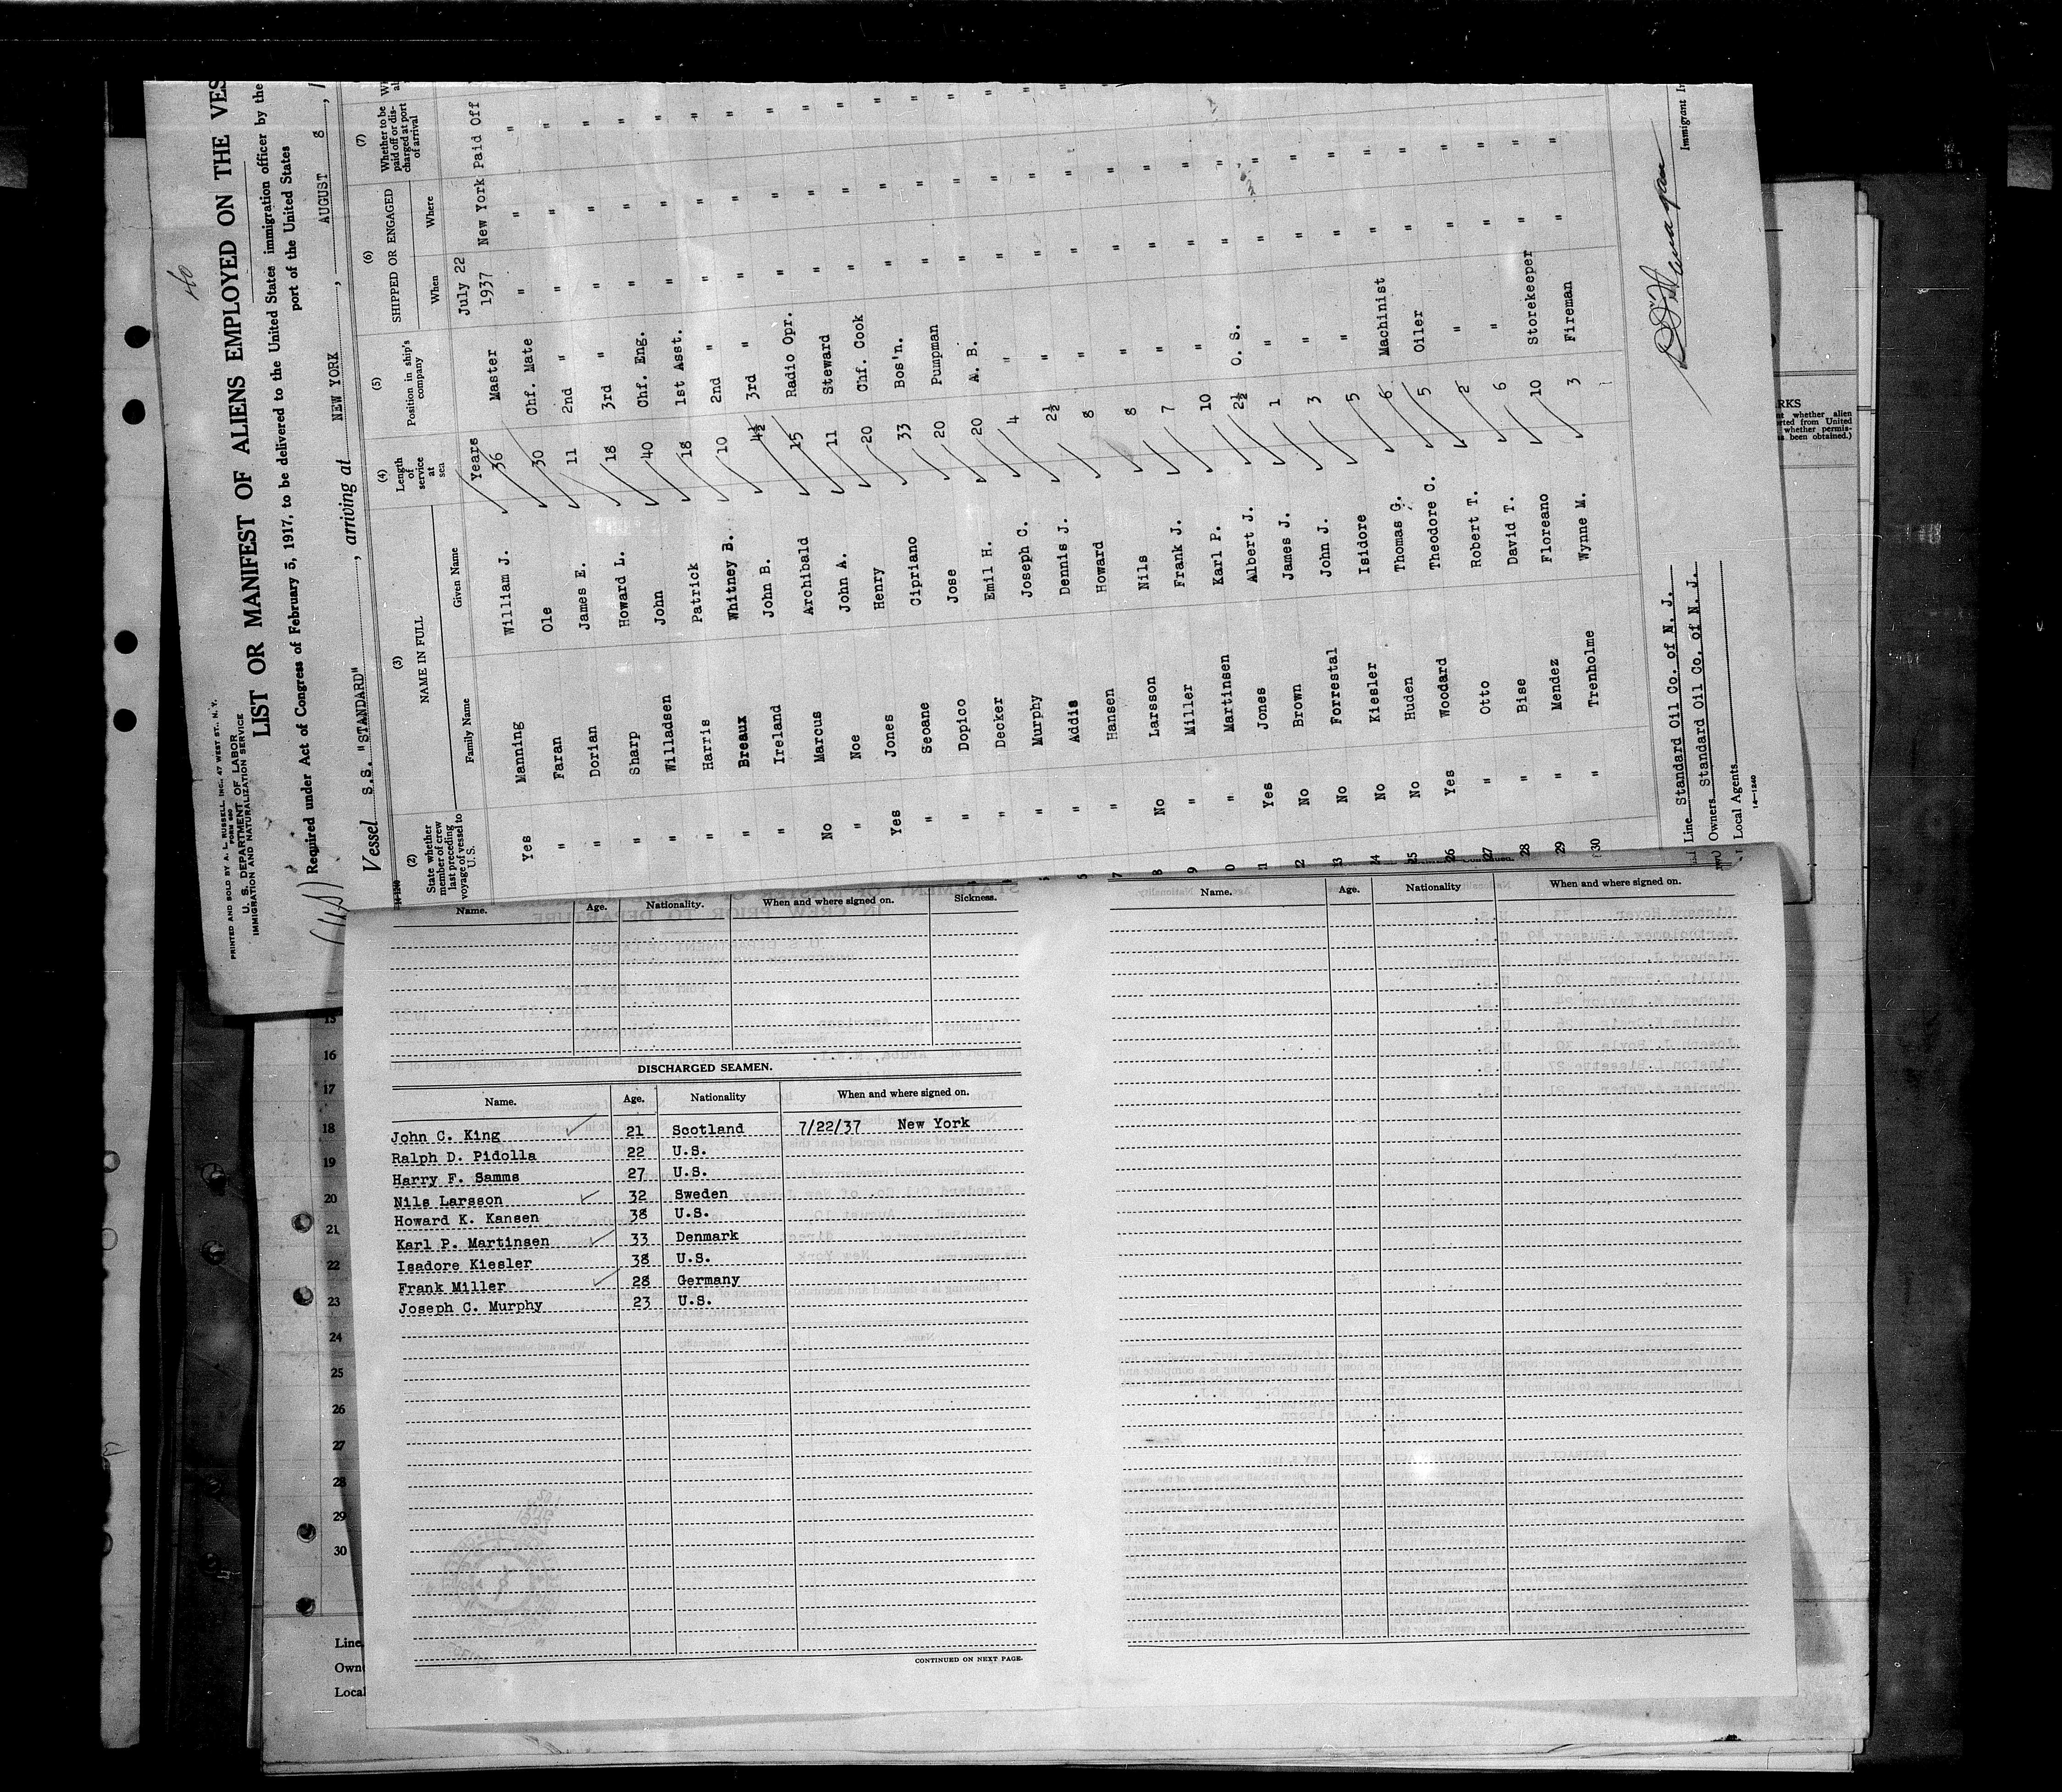 40
PRINTED AND SOLD BY A. L. RUSSELL, INC., 47 WEST ST., N. Y.
FORM 680
U. S. DEPARTMENT OF LABOR
IMMIGRATION AND NATURALIZATION SERVICE
LIST OR MANIFEST OF ALIENS EMPLOYED ON THE VES
Required under Act of Congress of February 5, 1917, to be delivered to the United States immigration officer by the
port of the United States
Vessel S.S. "STANDARD" , arriving at NEW YORK , AUGUST 8 , 1
(2) (3) (4) (5) (6) (7)
State whether member of crew last preceding voyage of vessel to U.S. NAME IN FULL Length of service at sea Position in ship's company SHIPPED OR ENGAGED Whether to be paid off or discharged at port of arrival
Family Name Given Name When Where
Years July 22
Yes Manning William J. 36 Master 1937 New York Paid Off
" Faran Ole 30 Chf. Mate " " "
" Dorian James E. 11 2nd " " " "
" Sharp Howard L. 18 3rd " " " "
" Willadsen John 40 Chf. Eng. " " "
" Harris Patrick 18 1st Asst. " " "
" Breaux Whitney B. 10 2nd " " " "
" Ireland John B. 4½ 3rd " " " "
No Marcus Archibald 15 Radio Opr. " " "
" Noe John A. 11 Steward " " "
Yes Jones Henry 20 Chf. Cook " " "
" Seoane Cipriano 33 Bos'n. " " "
" Dopico Jose 20 Pumpman " " "
" Decker Emil H. 20 A. B. " " "
" Murphy Joseph C. 4 " " " "
" Addis Dennis J. 2½ " " " "
" Hansen Howard 8 " " " "
No Larsson Nils 8 " " " "
" Miller Frank J. 7 " " " "
" Martinsen Karl P. 10 " " " "
Yes Jones Albert J. 2½ O. S. " " "
No Brown James J. 1 " " " "
No Forrestal John J. 3 " " " "
No Kiesler Isidore 5 " " " "
No Huden Thomas G. 6 Machinist " " "
26 Yes Woodard Theodore C. 5 Oiler " " "
27 " Otto Robert T. 2 " " " "
28 " Bise David T. 6 " " " "
29 " Mendez Floreano 10 Storekeeper " "
30 " Trenholme Wynne M. 3 Fireman " "
Line Standard Oil Co. of N. J.
Owners Standard Oil Co. of N. J.
Local Agents
14—1240
Immigrant I
RKS
whether alien
rted from United
whether permis-
s been obtained.)
Name. Age. Nationality. When and where signed on. Sickness.
DISCHARGED SEAMEN.
Name. Age. Nationality When and where signed on.
John C. King 21 Scotland 7/22/37 New York
Ralph D. Pidolla 22 U.S.
Harry F. Samms 27 U.S.
Nils Larsson 32 Sweden
Howard K. Kansen 38 U.S.
Karl P. Martinsen 33 Denmark
Isadore Kiesler 38 U.S.
Frank Miller 28 Germany
Joseph C. Murphy 23 U.S.
CONTINUED ON NEXT PAGE.
Name. Age. Nationality When and where signed on.
15
16
17
18
19
20
21
22
23
24
25
26
27
28
29
30
Line
Own
Local